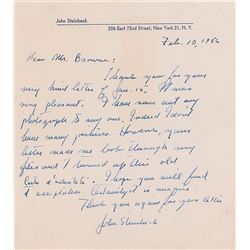 John Steinbeck
206 East 72nd Street, New York 21, N. Y.
Feb. 10, 1956
Dear Mr. Browne:
Thank you for your
very kind letter of Jan. 15. It was
very pleasant. I have never sent my
photograph to any one. Indeed I don't
have many pictures. However, your
letter made me look through my
files and I turned up this old
Carte d'identité. I hope you will find
it acceptable. Certainly it is unique.
Thank you again for your letter
John Steinbeck